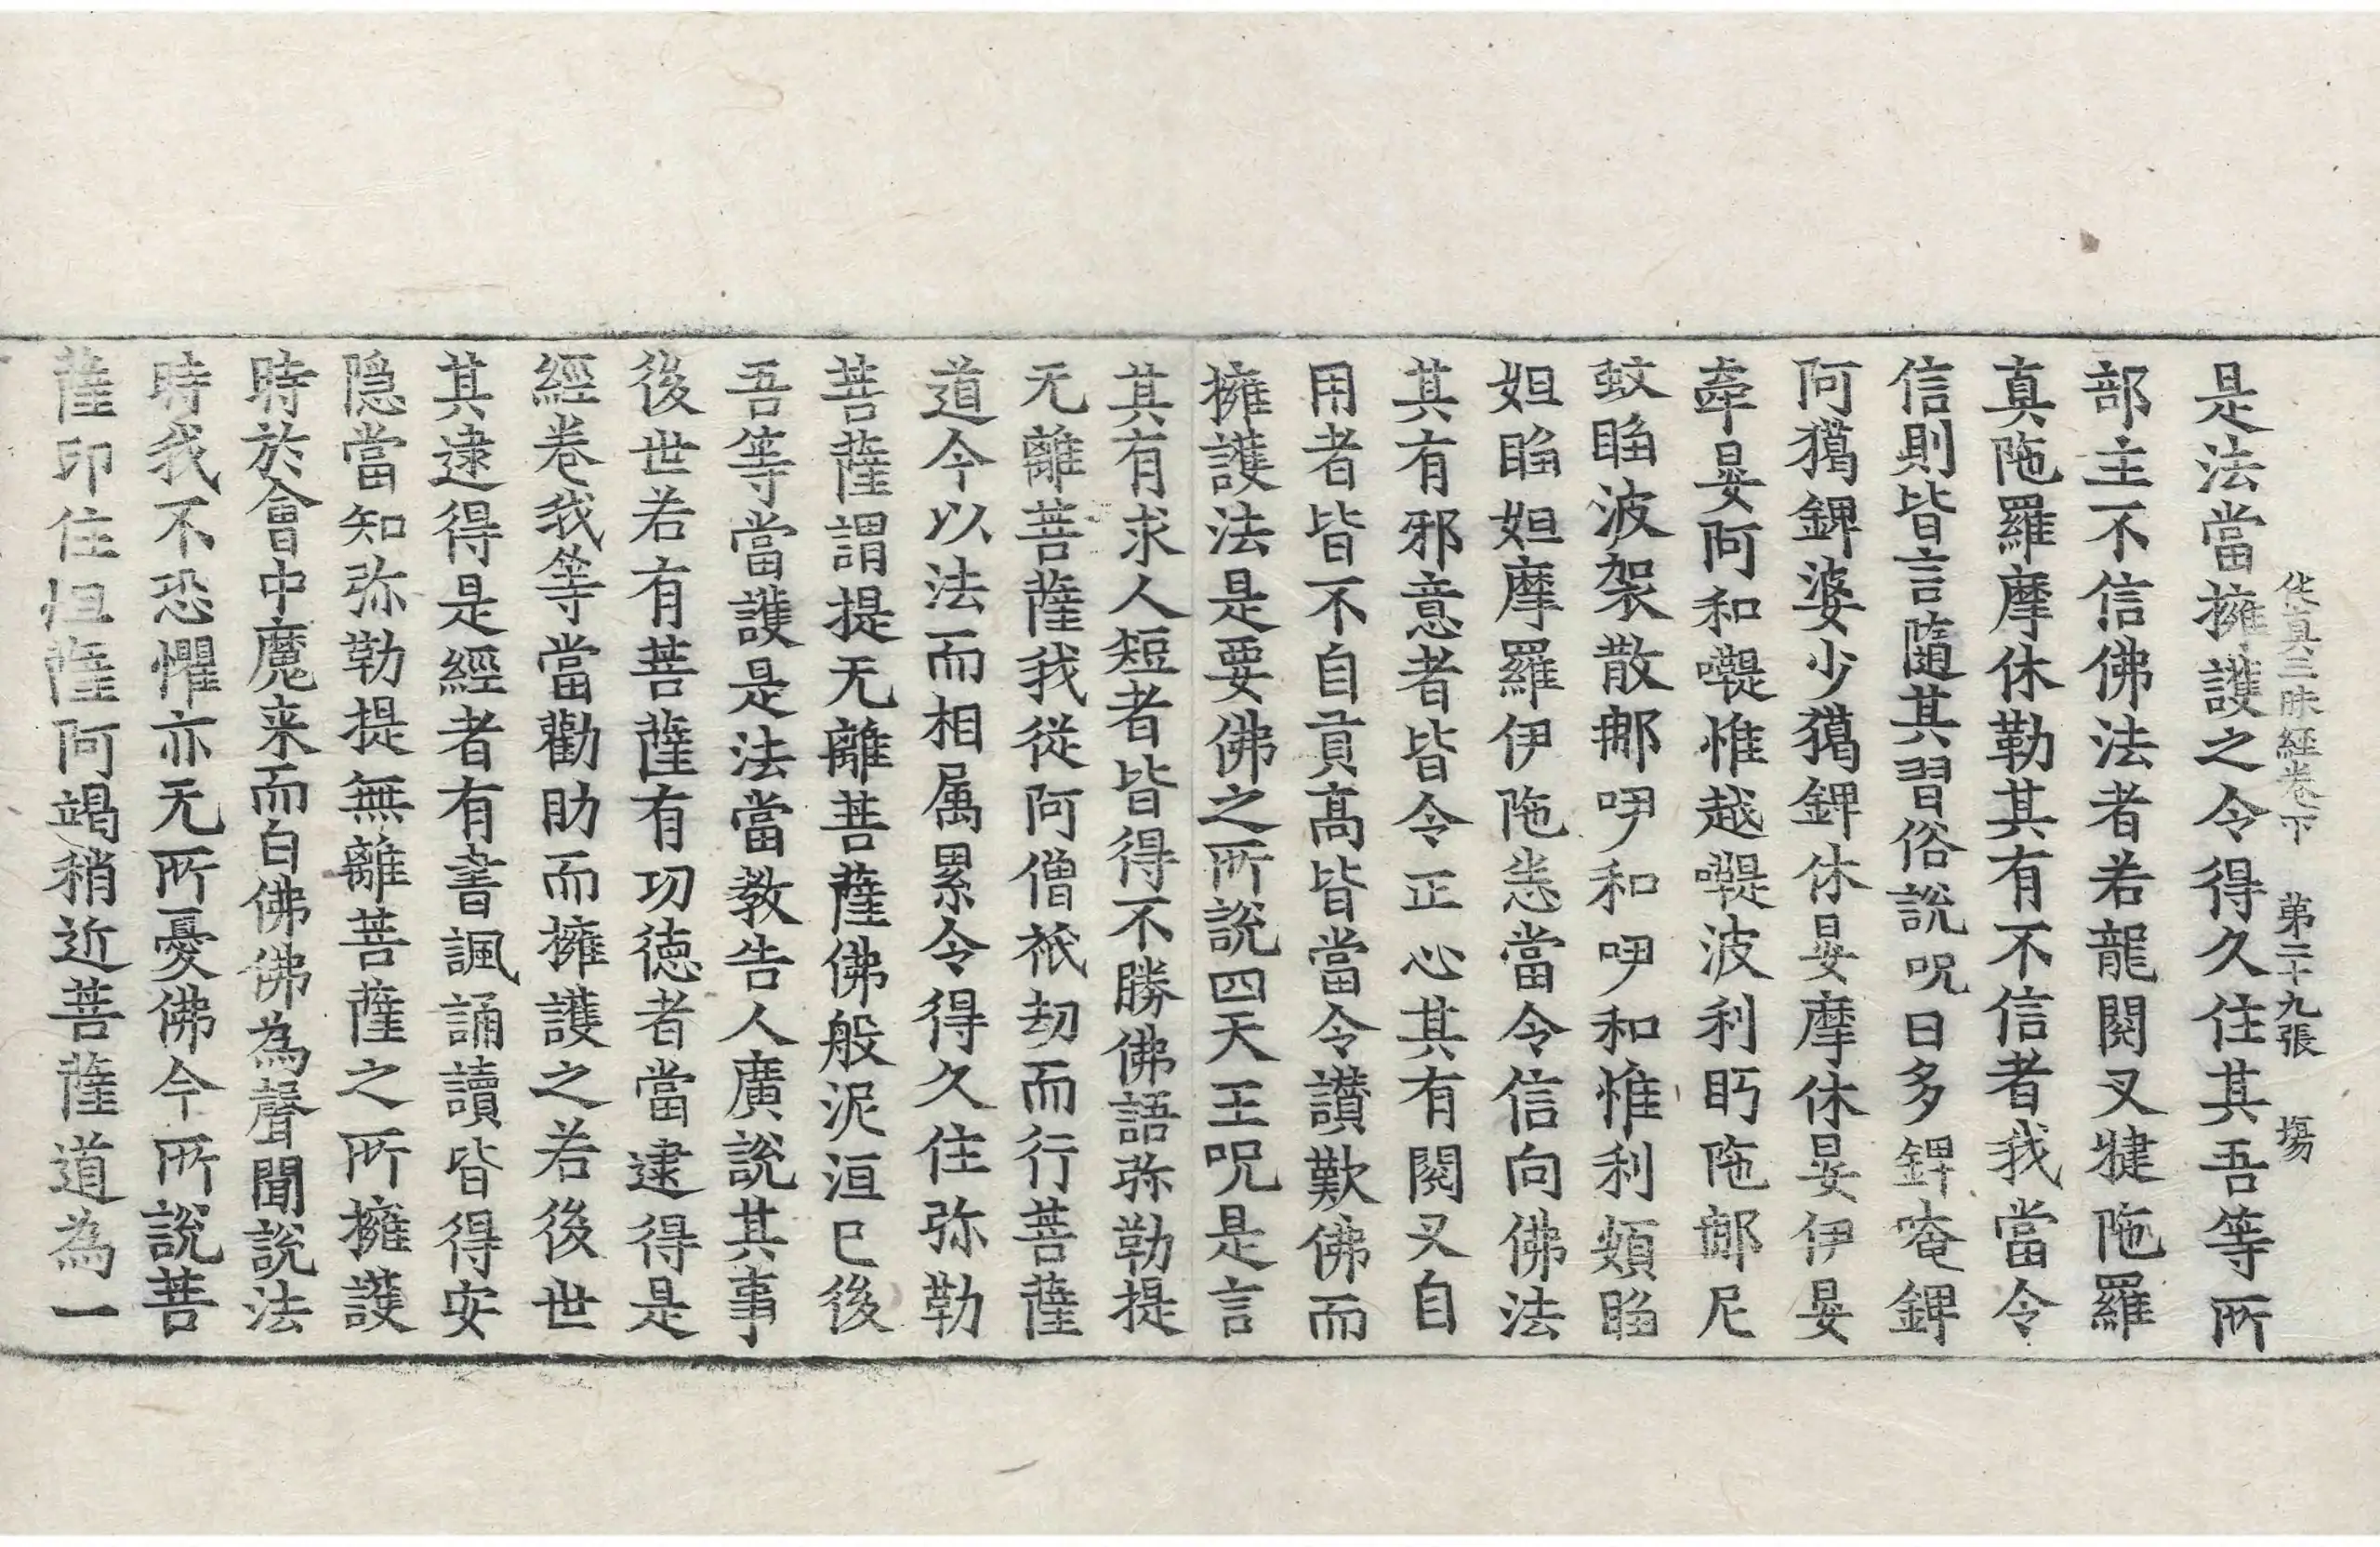 伅真三昧経卷下　第二十九張　塲
是法當擁護之令得久住其吾等所
部主不信佛法者若龍閱叉犍陁羅
真陁羅摩休勒其有不信者我當令
信則皆言隨其習俗說呪曰多錍唵錍
阿獦錍婆少獦錍休晏摩休晏伊晏
牽晏阿和㘑惟越㘑波利眄陁郍尼
蚊䀫波袈散郍吚和吚和惟利頞䀫
妲䀫妲摩羅伊陁恙當令信向佛法
其有邪意者皆令正心其有閱叉自
用者皆不自貢髙皆當令讃歎佛而
擁護法是要佛之所說四天王呪是言
其有求人短者皆得不勝佛語弥勒提
无離菩薩我從阿僧祇劫而行菩薩
道今以法而相属累令得久住弥勒
菩薩謂提无離菩薩佛般泥洹已後
吾等當護是法當教告人廣說其事
後世若有菩薩有功德者當逮得是
經卷我等當勸助而擁護之若後世
其逮得是經者有書諷誦讀皆得安
隐當知弥勒提無離菩薩之所擁護
時於會中魔来而白佛佛為聲聞說法
時我不恐懼亦无所憂佛今所說菩
薩印住怛薩阿竭稍近菩薩道為一